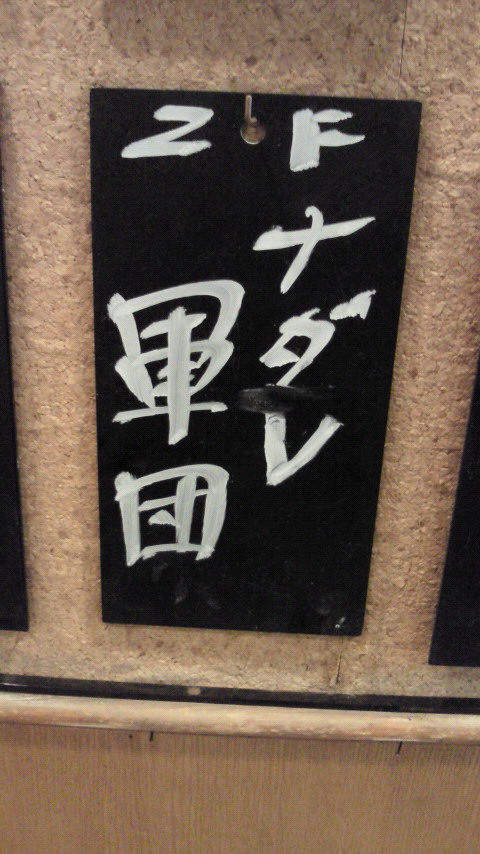 2F
ナダレ
軍団